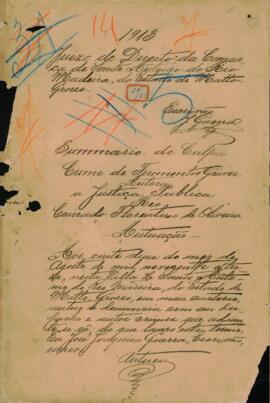 1913
Juizo de Direito da Comar
ca de Santo Antonio do Rio
Madeira, do Estado de Matto
Grosso.
Escrivão
Guerra
Summario de Culpa
Crime de Ferimentos Graves
Autora
a Justiça Publica
Reo
Conrado Florentino de Oliveira
Autuação
Aos vinte dias do mez de
Agosto de mil novecentos e tre
ze, nesta Villa de Santo Anto
nio do Rio Madeira, do Estado de
Matto Grosso, em meu cartorio,
a denuncia com seu des
pacho e autos que adian
te se vê, do que lavro este termo.
Eu José Joaquim Guerra, Escrivão,
escrevi